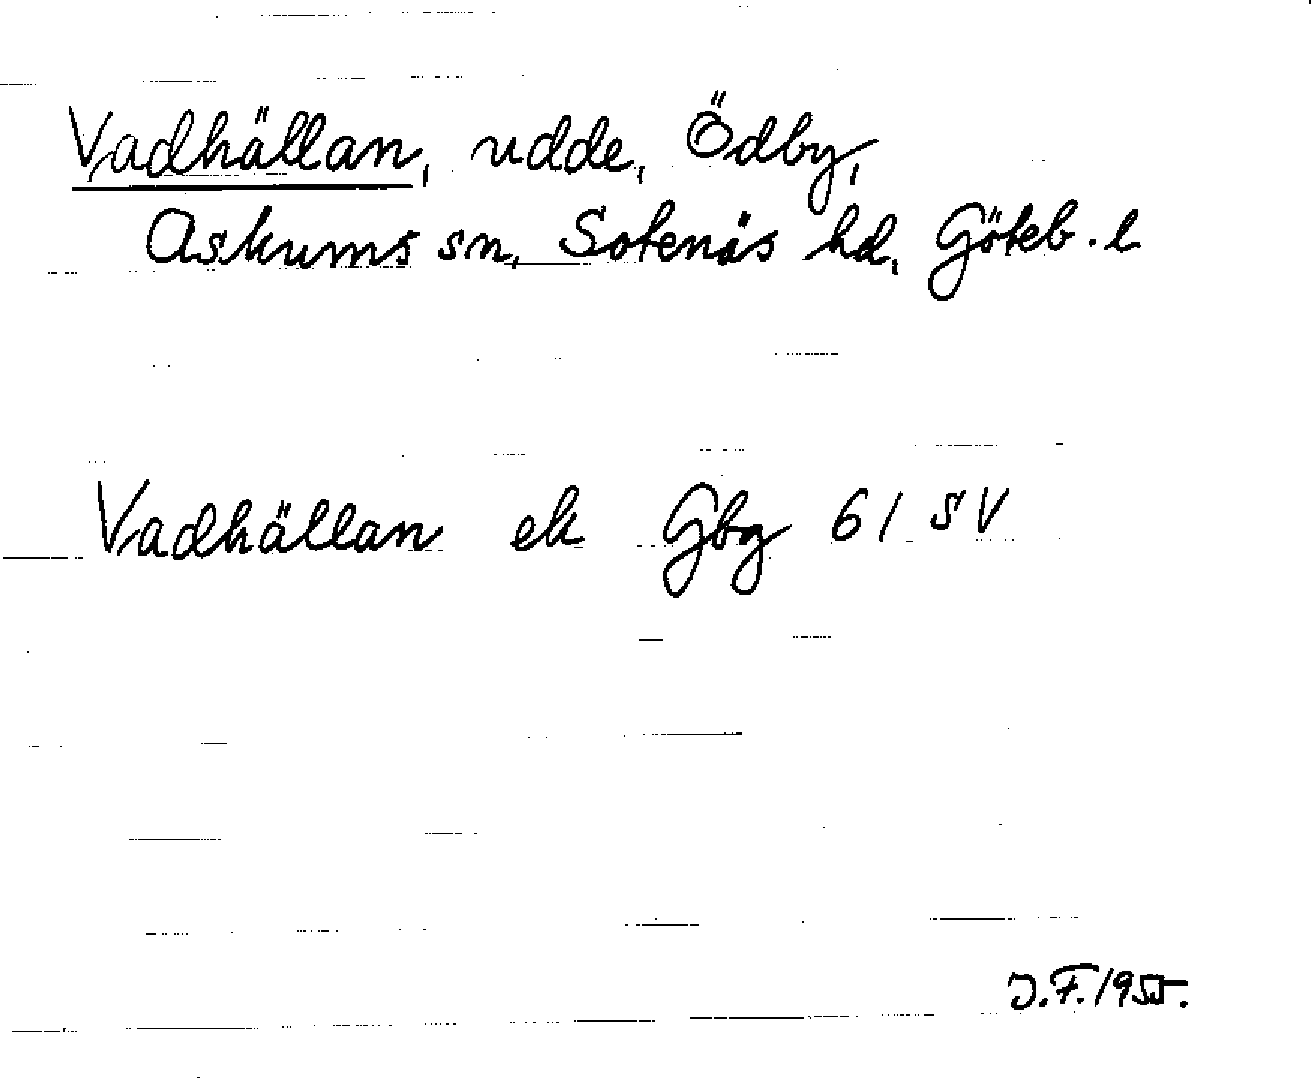 Vadhällan, udde, Ödby,
Askums sn, Sotenäs hd, Göteb. l
Vadhällan ek Gbg 61 SV
J.F. 1955.